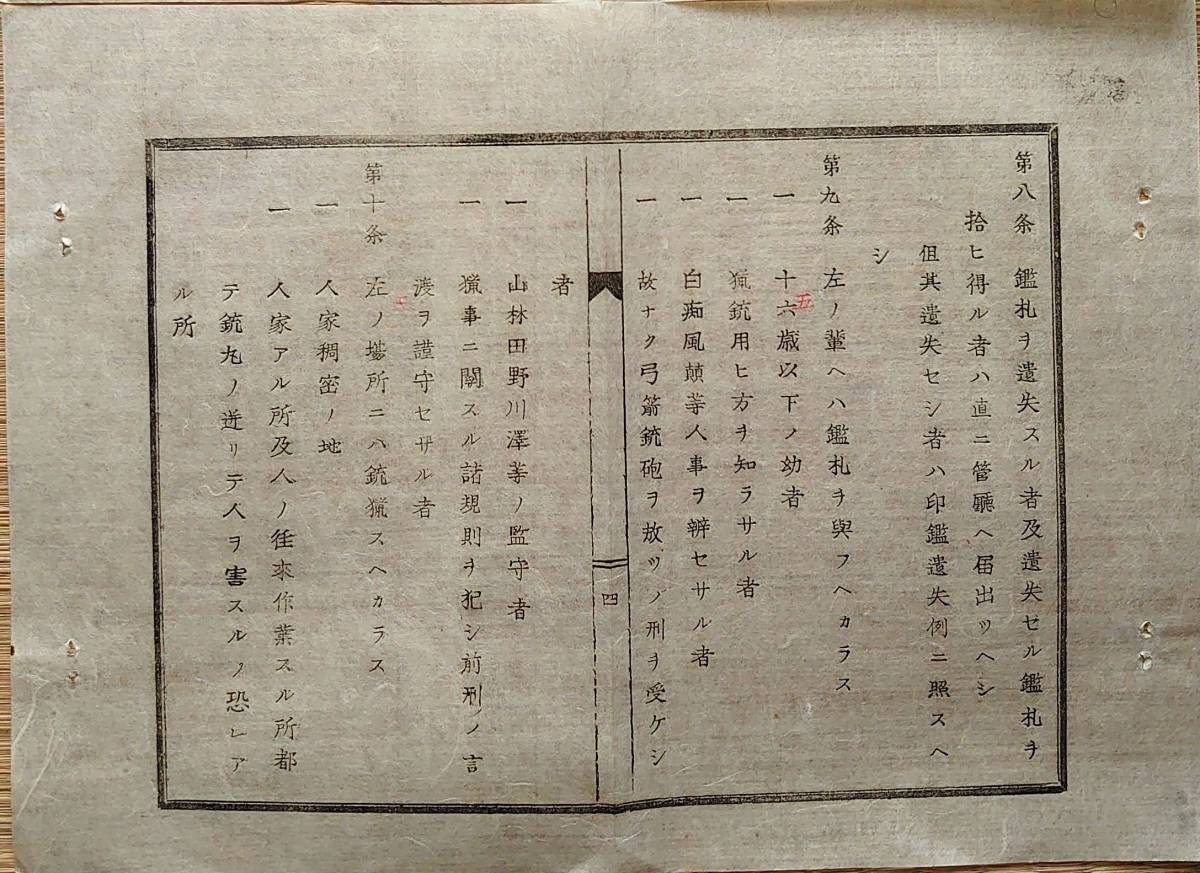 第八条 鑑札ヲ遺失スル者及遺失セル鑑札ヲ
拾ヒ得ル者ハ直ニ管廳ヘ届出ツヘシ
但其遺失セシ者ハ印鑑遺失例ニ照スヘ
シ
第九条 左ノ輩ヘハ鑑札ヲ與フヘカラス
一 十六歳以下ノ幼者
五
一 猟銃用ヒ方ヲ知ラサル者
一 白痴風顛等人事ヲ辨セサル者
一 故ナク弓箭銃砲ヲ放ツノ刑ヲ受ケシ
四
者
一 山林田野川澤等ノ監守者
一 猟事ニ關スル諸規則ヲ犯シ前刑ノ言
渡ヲ謹守セサル者
第十条 左ノ場所ニハ銃猟スヘカラス
一 人家稠密ノ地
一 人家アル所及人ノ徃来作業スル所都
テ銃丸ノ迸リテ人ヲ害スルノ恐レア
ル所